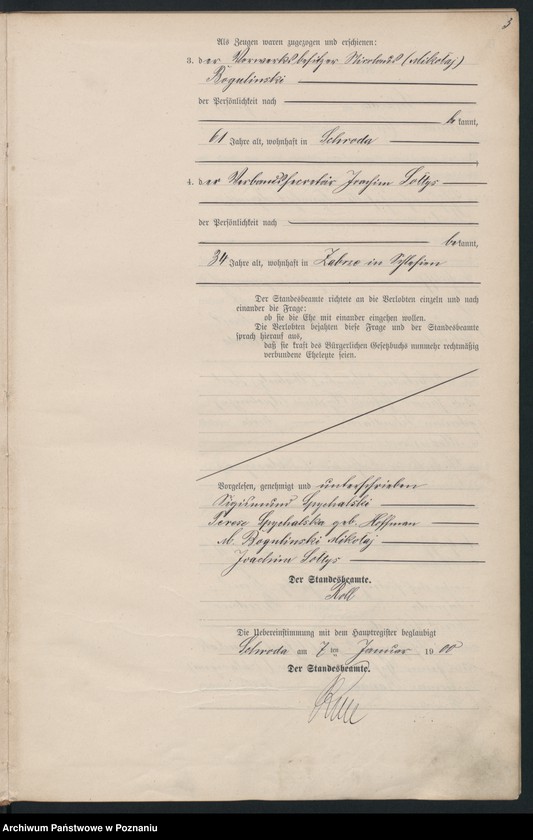 3
Als Zeugen waren zugezogen und erschienen:
3. der Vorwerksbesitzer Nicolaus (Mikołaj)
Bogulinski
der Persönlichkeit nach
be kannt,
61 Jahre alt, wohnhaft in Schroda
4. der Verbandssecretär Joachim Soltys
der Persönlichkeit nach
be kannt,
34 Jahre alt, wohnhaft in Zabrze in Schlesien
Der Standesbeamte richtete an die Verlobten einzeln und nach
einander die Frage:
ob sie die Ehe mit einander eingehen wollen.
Die Verlobten bejahten diese Frage und der Standesbeamte
sprach hierauf aus,
daß sie kraft des Bürgerlichen Gesetzbuchs nunmehr rechtmäßig
verbundene Eheleute seien.
Vorgelesen, genehmigt und unterschrieben
Sigismund Spychalski
Terese Spychalska geb. Hoffman
M. Bogulinski Mikołaj
Joachim Soltys
Der Standesbeamte.
Roll
Die Uebereinstimmung mit dem Hauptregister beglaubigt
Schroda am 7 ten Januar 19 00
Der Standesbeamte.
Archiwum Państwowe w Poznaniu